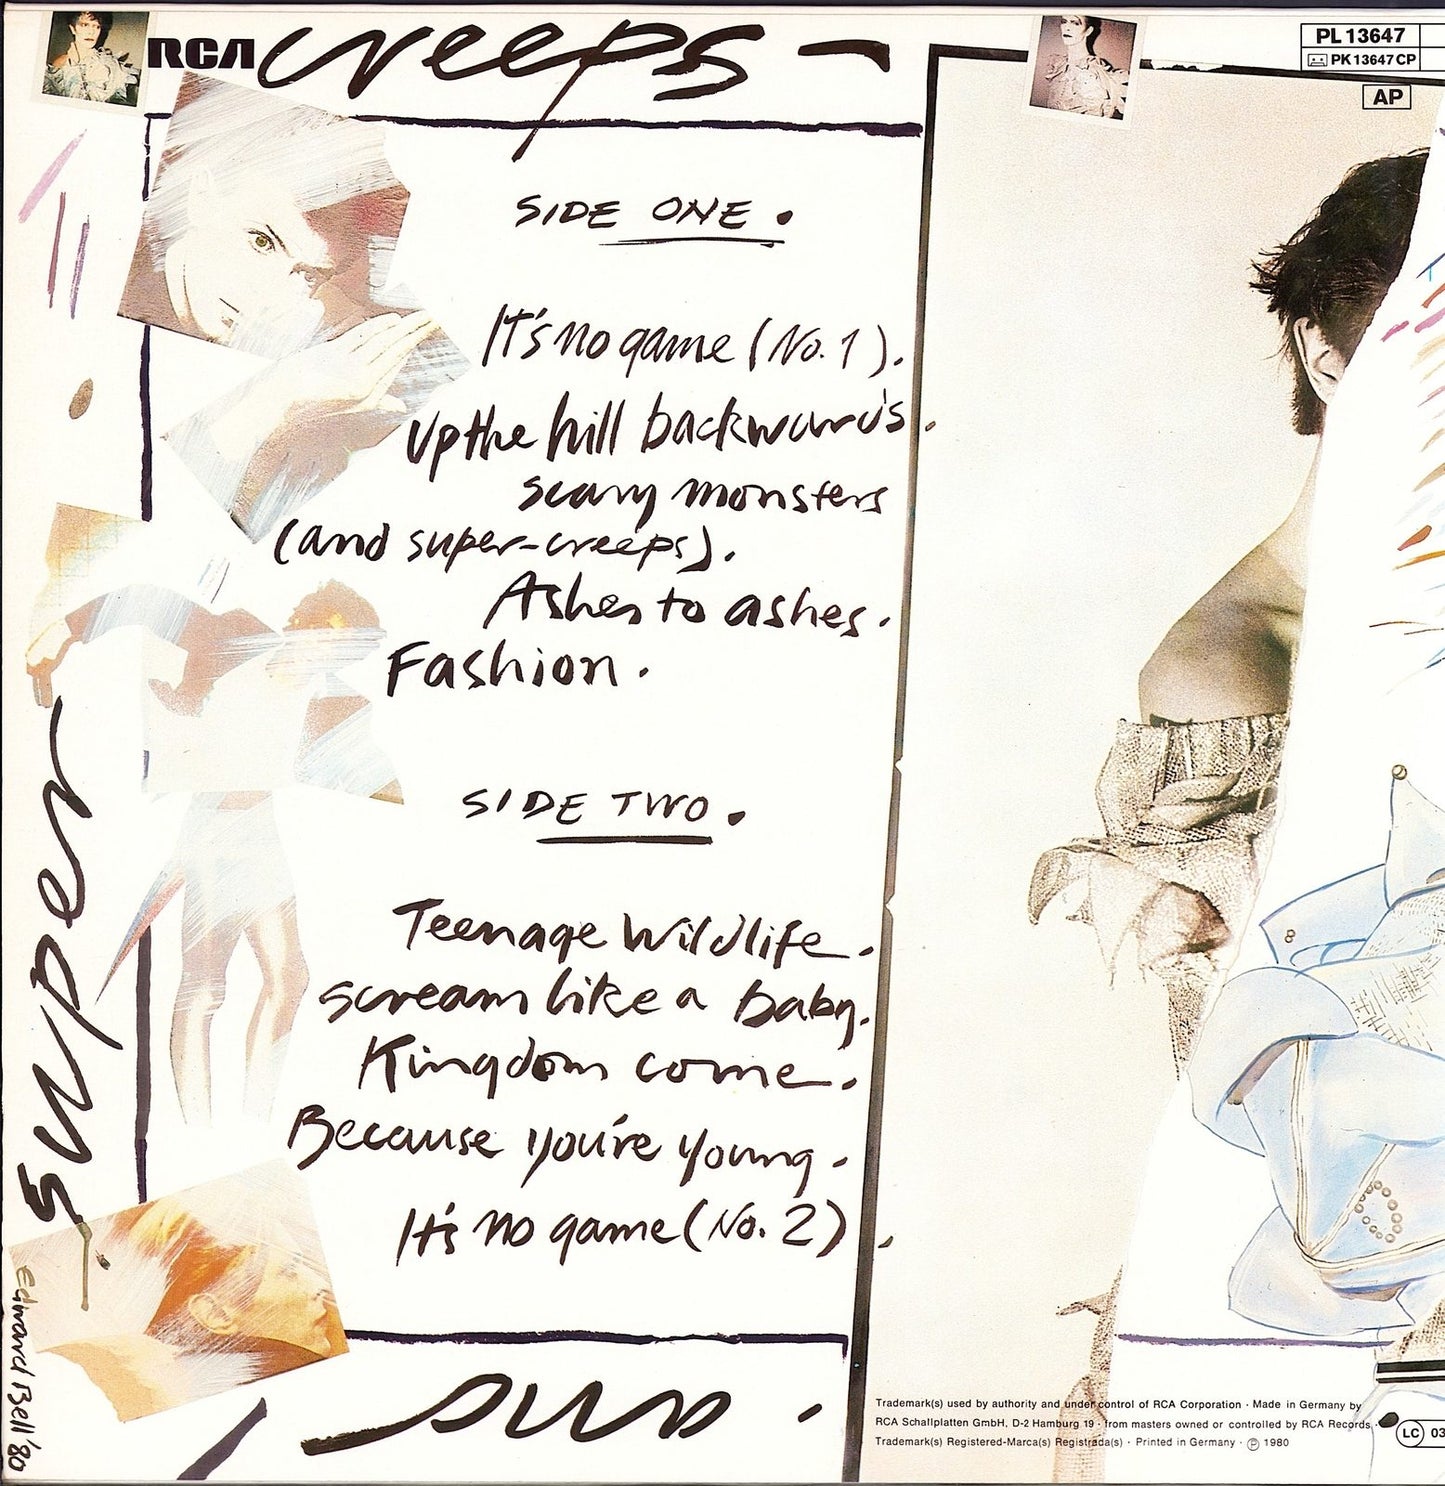 RCA creeps -
PL 13647
PK 13647 CP
AP
SIDE ONE.
It's no game (No. 1).
Up the hill backwards.
scary monsters
(and super-creeps).
Ashes to ashes.
Fashion.
SIDE TWO.
Teenage Wildlife.
scream like a baby.
Kingdom come.
Because you're young.
It's no game (No. 2).
super
and.
Edward Bell '80
Trademark(s) used by authority and under control of RCA Corporation · Made in Germany by
RCA Schallplatten GmbH, D-2 Hamburg 19 · from masters owned or controlled by RCA Records ·
Trademark(s) Registered-Marca(s) Registrada(s) · Printed in Germany · Ⓟ 1980
LC 03